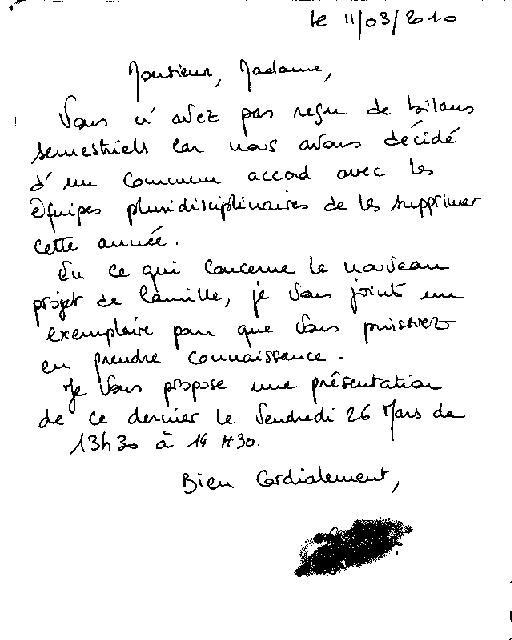 le 11/03/2010
Monsieur, Madame,
Vous n'avez pas reçu de bilans
semestriels car nous avons décidé
d'un commun accord avec les
équipes pluridisciplinaires de les supprimer
cette année.
En ce qui concerne le nouveau
projet de Camille, je vous joint un
exemplaire pour que vous puissiez
en prendre connaissance.
Je vous propose une présentation
de ce dernier le Vendredi 26 Mars de
13h30 à 14H30.
Bien Cordialement,